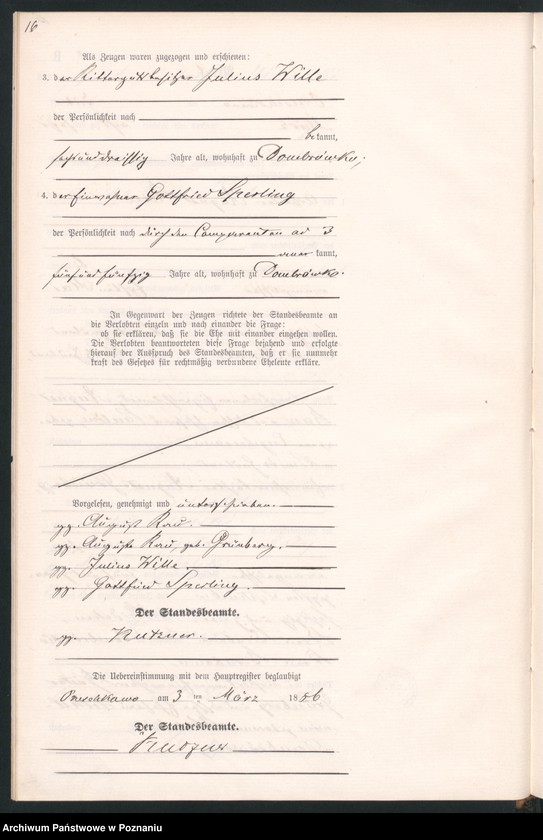 16
Als Zeugen waren zugezogen und erschienen:
3. der Rittergutsbesitzer Julius Wille
der Persönlichkeit nach
bekannt,
sechsunddreissig Jahre alt, wohnhaft zu Dombrówka;
4. der Einwohner Gottfried Sperling
der Persönlichkeit nach durch den Comparenten ad 3
kannt,
fünfundfünfzig Jahre alt, wohnhaft zu Dombrówka.
In Gegenwart der Zeugen richtete der Standesbeamte an
die Verlobten einzeln und nach einander die Frage:
ob sie erklären, daß sie die Ehe mit einander eingehen wollen.
Die Verlobten beantworteten diese Frage bejahend und erfolgte
hierauf der Ausspruch des Standesbeamten, daß er sie nunmehr
kraft des Gesetzes für rechtmäßig verbundene Eheleute erkläre.
Vorgelesen, genehmigt und unterschrieben.
gz. August Rau.
gz. Auguste Rau, geb. Grünberg.
gz. Julius Wille
gz. Gottfried Sperling.
Der Standesbeamte.
gz.
Die Uebereinstimmung mit dem Hauptregister beglaubigt
am 3 ten März 1886
Der Standesbeamte.
Archiwum Państwowe w Poznaniu